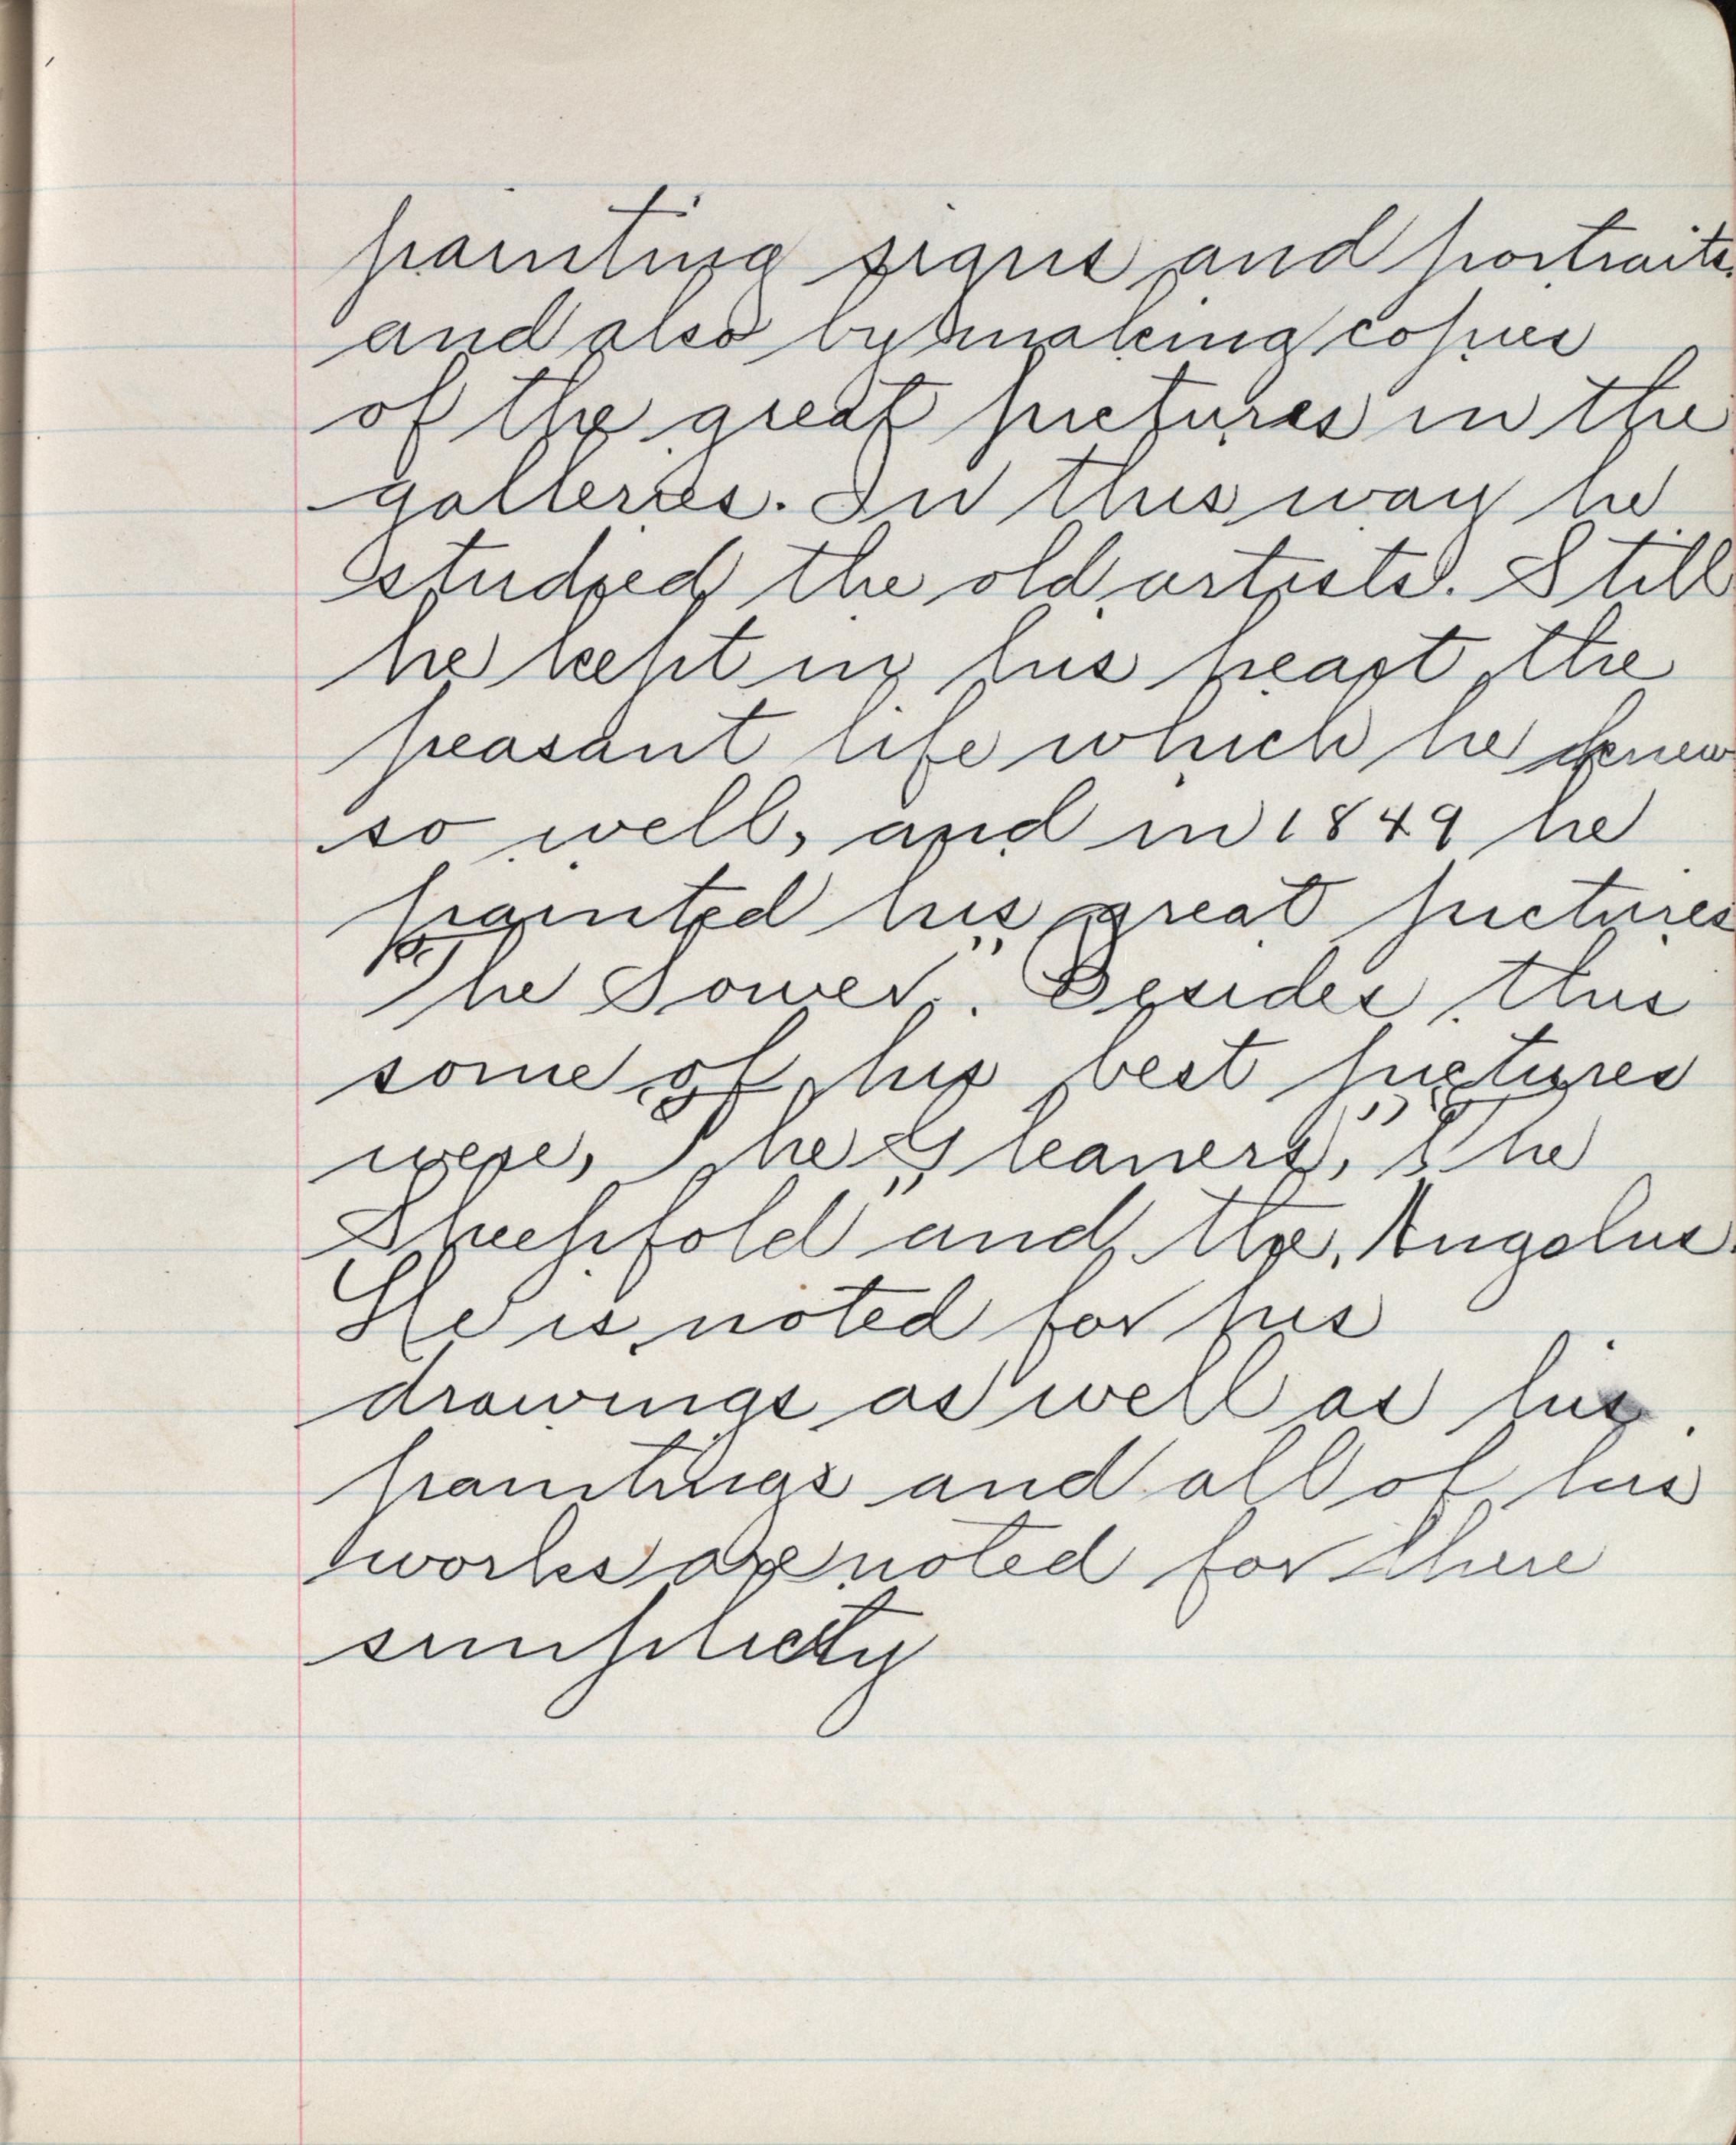 painting signs and portraits.
and also by making copies
of the great pictures in the
galleries. In this way he
studied the old artists. Still
he kept in his heart the
peasant life which he knew
so well, and in 1849 he
painted his great pictures
"The Sower". Besides this
some of his best pictures
were, "The Gleaners", "The
Sheepfold" and the, Angelus.
He is noted for his
drawings as well as his
paintings and all of his
works are noted for there
simplicity